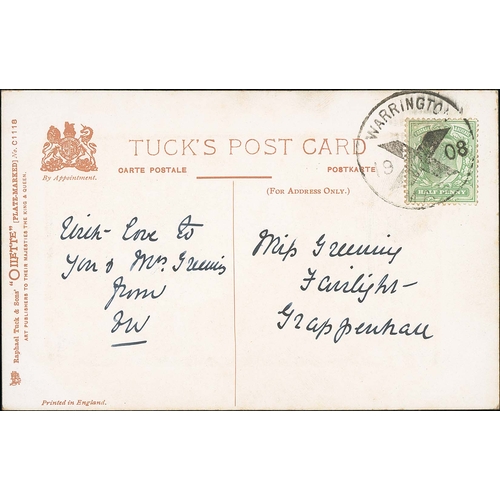 TUCK'S POST CARD
By Appointment.
CARTE POSTALE POSTKARTE
(FOR ADDRESS ONLY.)
WARRINGTON
19 08
HALFPENNY
With love to
You & Mrs. Greening
from
Miss Greening
Fairlight
Grappenhall
Raphael Tuck & Sons' "OILETTE" [PLATE-MARKED] No. C1118
ART PUBLISHERS TO THEIR MAJESTIES THE KING & QUEEN.
Printed in England.